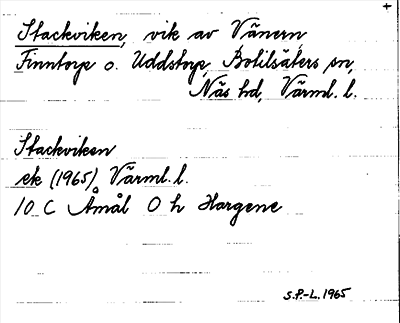 +
Stackviken, vik av Vänern,
Finntorp o. Uddstorp, Botilsäters sn,
Näs hd, Värml. l.
Stackviken
ek (1965), Värml. l.
10 C Åmål O h Hargene
S.P.-L. 1965